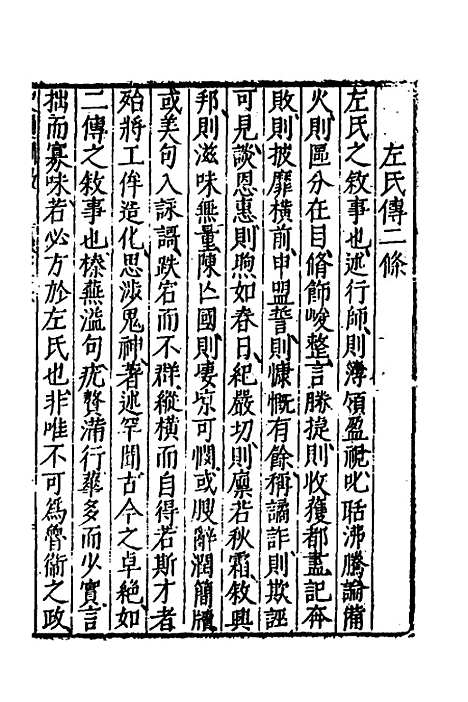 左氏傳二條
左氏之敘事也述行師則簿領盈視叱聒沸騰論備
火則區分在目脩飾峻整言勝捷則收獲都盡記奔
敗則披靡橫前申盟誓則慷慨有餘稱譎詐則欺誣
可見談恩惠則煦如春日紀嚴切則凛若秋霜敘興
邦則滋味無量陳亾國則凄凉可憫或腴辭潤簡牘
或美句入詠謌跌宕而不群縱橫而自得若斯才者
殆將工侔造化思涉鬼神著述罕聞古今之卓絶如
二傳之敘事也榛蕪溢句疣贅滿行華多而少實言
拙而寡味若必方於左氏也非唯不可爲魯衛之政